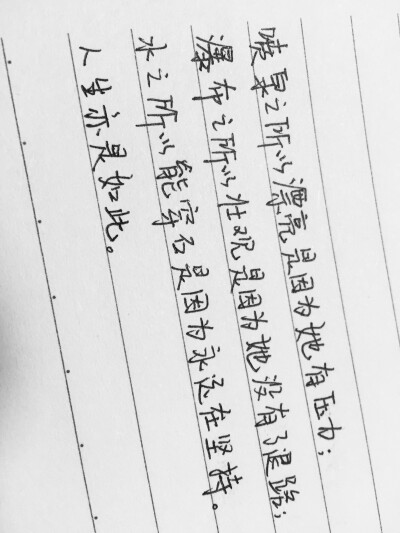 喷泉之所以漂亮是因为她有压力；
瀑布之所以壮观是因为她没有了退路；
水之所以能穿石是因为永远在坚持。
人生亦是如此。